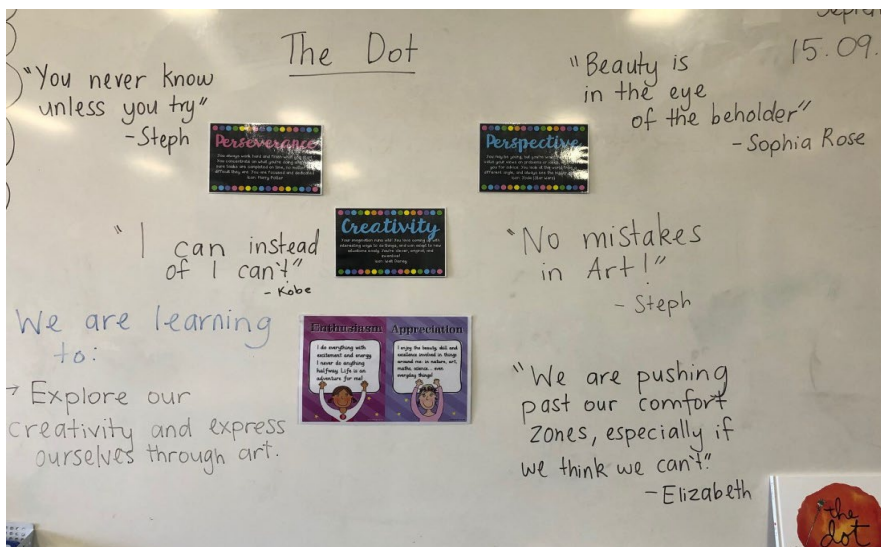 The Dot
15.09.
"You never know
unless you try"
-Steph
"Beauty is
in the eye
of the beholder"
- Sophia Rose
Perseverance
Perspective
Creativity
"I can instead
of I can't"
- Kobe
"No mistakes
in Art!"
- Steph
We are learning
to:
→ Explore our
creativity and express
ourselves through art.
Enthusiasm
I do everything with
excitement and energy.
I never do anything
halfway. Life is an
adventure for me!
Appreciation
I enjoy the beauty, skill and
excellence involved in things
around me: in nature, art,
maths, science... even
everyday things!
"We are pushing
past our comfort
zones, especially if
we think we can't."
- Elizabeth
the
dot